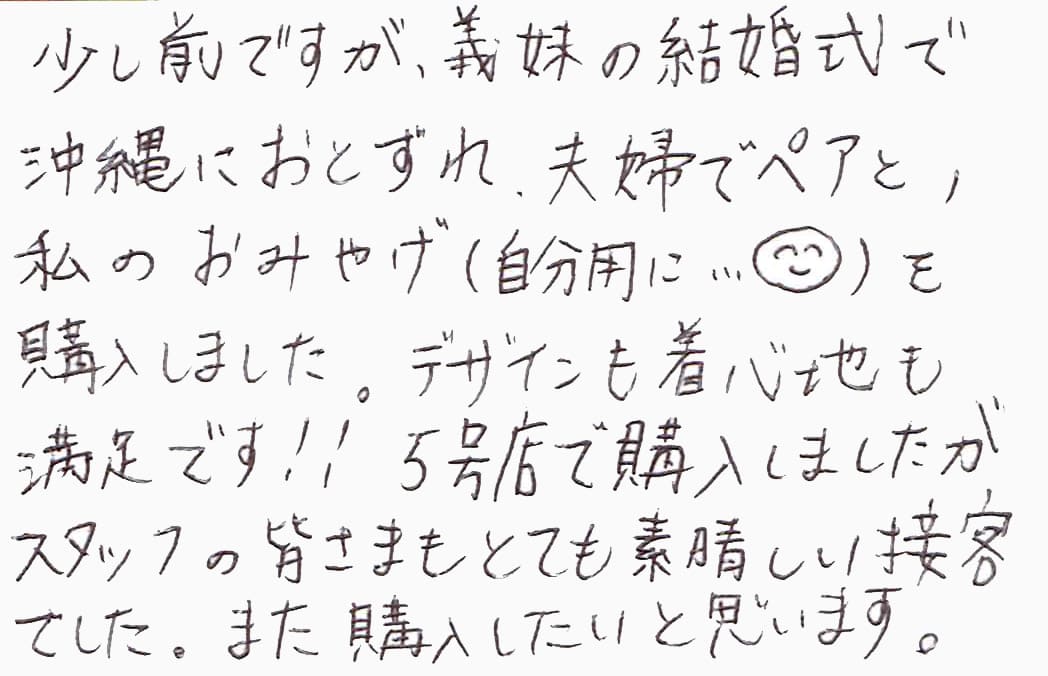 少し前ですが、義妹の結婚式で
沖縄におとずれ、夫婦でペアと,
私のおみやげ(自分用に…😊)を
購入しました。デザインも着心地も
満足です!! 5号店で購入しましたが
スタッフの皆さまもとても素晴しい接客
でした。また購入したいと思います。